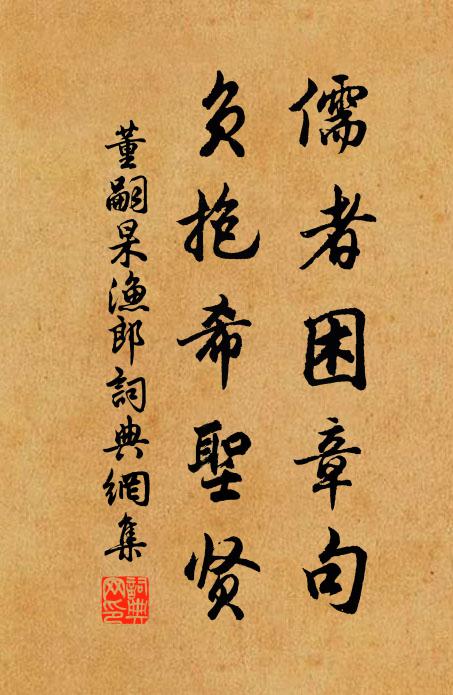 儒者困章句
负抱希聖贤
董嗣杲漁郎詞典網集
詞典网印